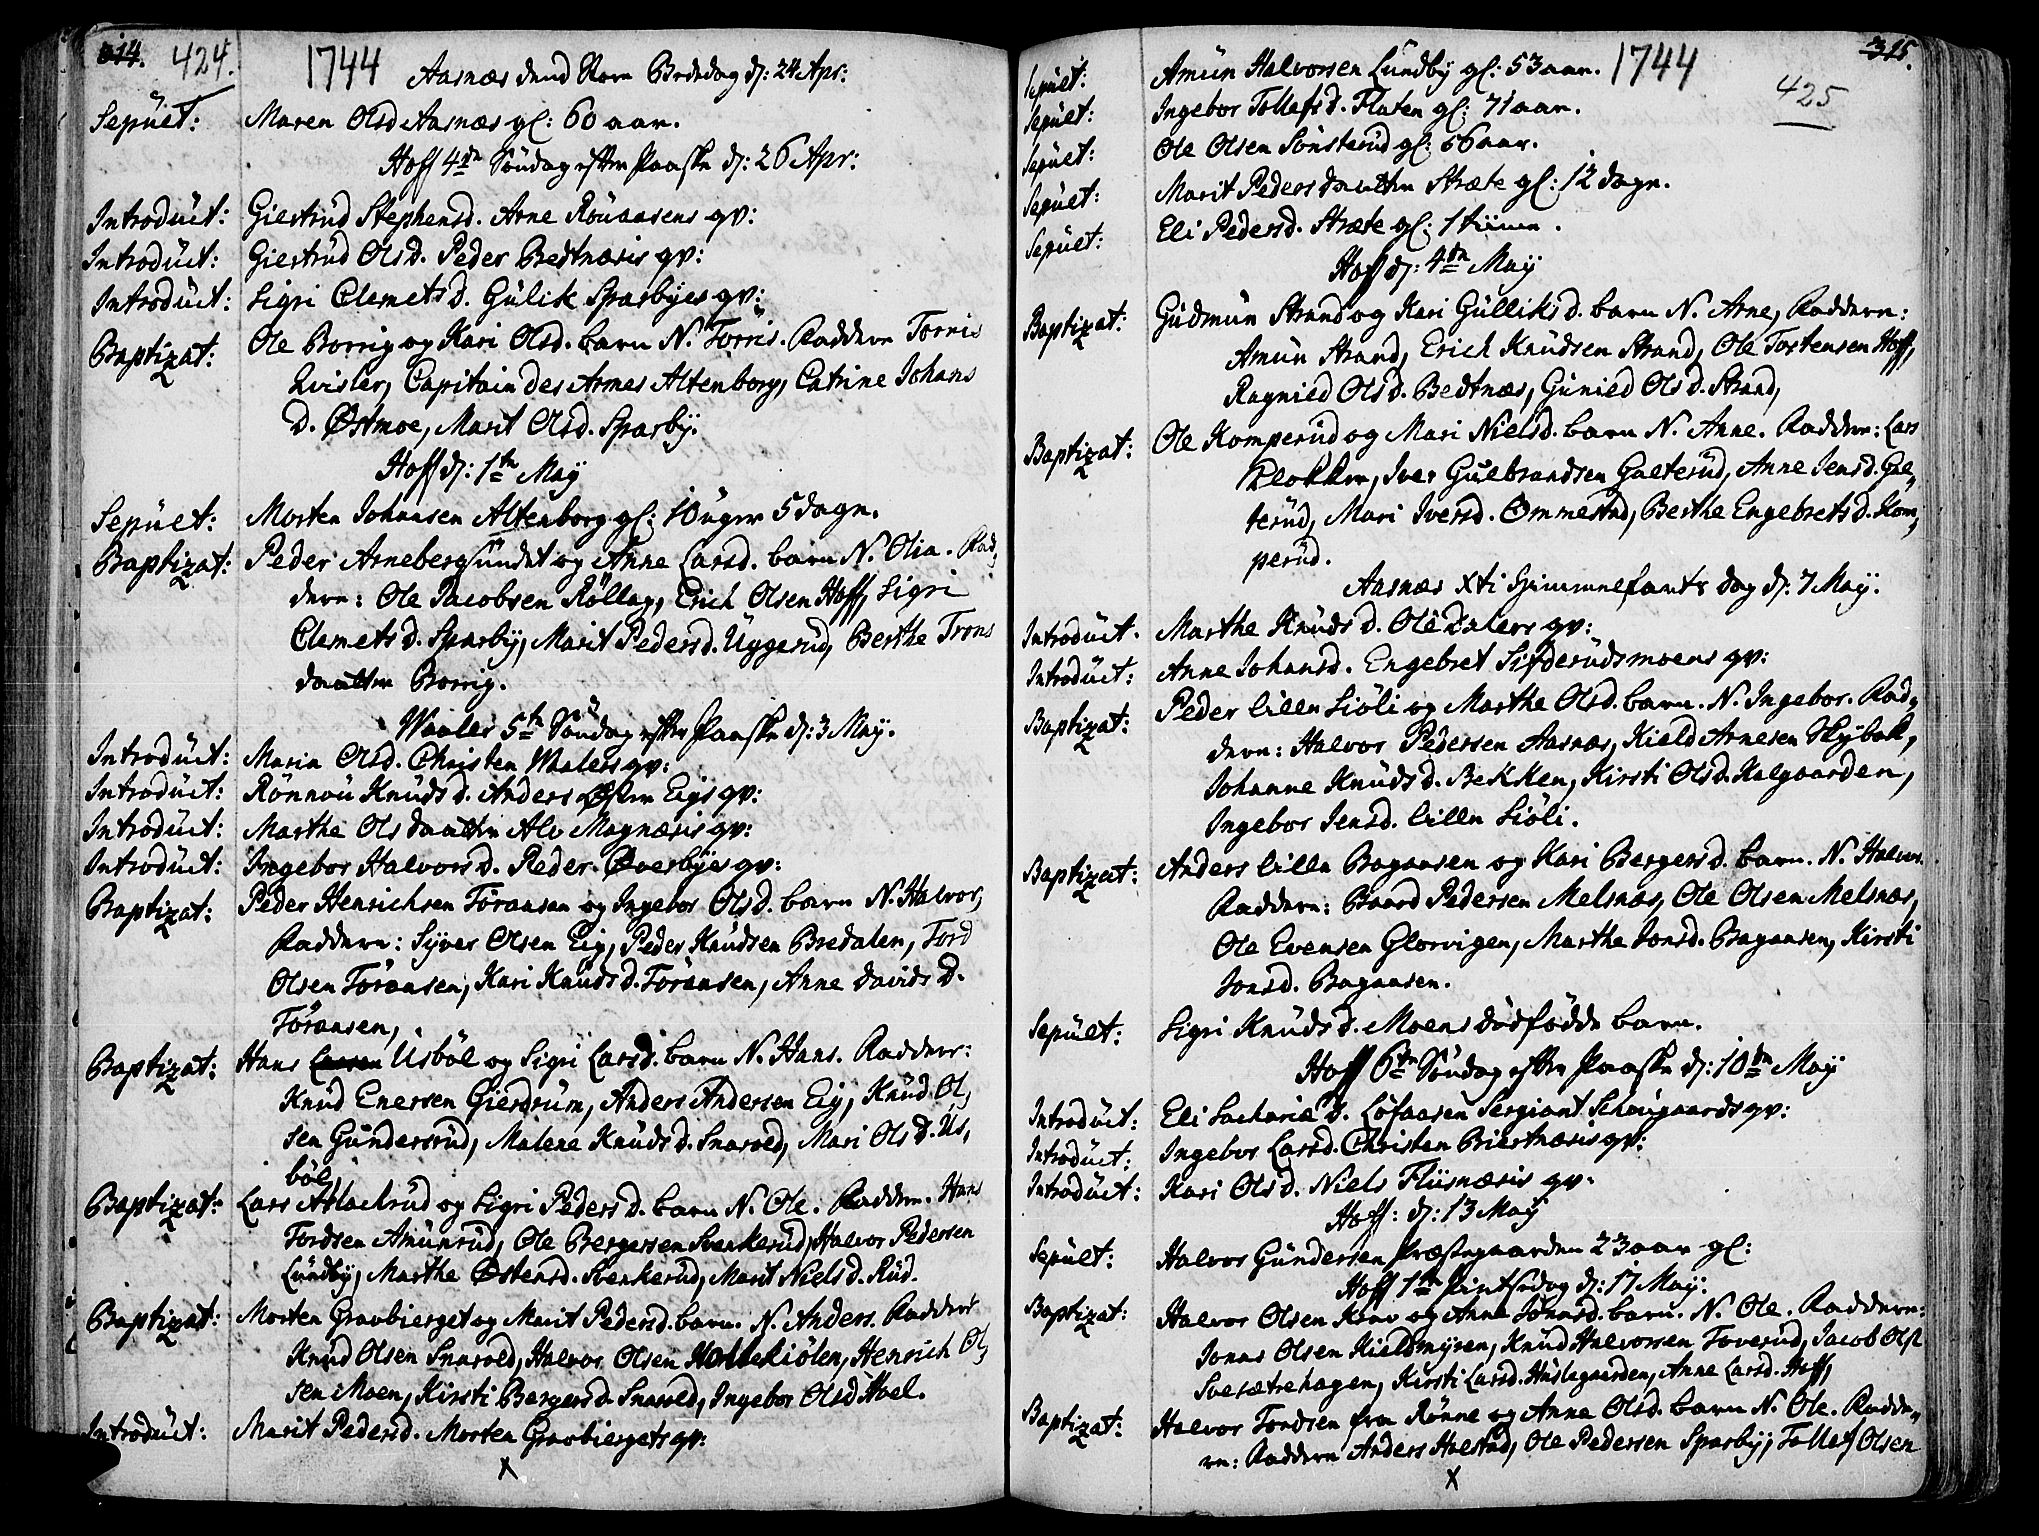 314. 424. 1744 Aasnæs dend Store Bededag d: 24 Apr:
Sepult: Maren Olsd Aasnæs gl: 60 aar.
Hoff 4de Søndag efter Paaske d: 26 Apr:
Introduct: Giertrud Stephensd. Arne Rouaasens qv:
Introduct: Giertrud Olsd. Peder Bedtnæsis qv:
Introduct: Sigri Clemetsd. Gulik Sparbyes qv:
Baptizat: Ole Borrig og Kari Olsd. barn N. Torris. Faddere Torris
Qvisler, Capitain des Armes Altenborg, Catrine Johans
D. Østmoe, Marit Olsd. Sparby.
Hoff d: 1te May
Sepult: Morten Johansen Altenborg gl: 10 uger 5 dage.
Baptizat: Peder Arnebergsundet og Anne Larsd. barn N. Olia. Fad,
dere: Ole Jacobsen Røllag, Erich Olsen Hoff, Sigri
Clemetsd. Sparby, Marit Pedersd. Uggerud, Berthe Trons
daatter Borrig.
Waaler 5te Søndag efter Paaske d: 3 May.
Introduct: Maria Olsd. Christen Waalers qv:
Introduct: Rønnou Knudsd. Anders Øster Eigs qv:
Introduct: Marthe Olsdaatter Alv Magnæsis qv:
Introduct: Ingebor Halvorsd. Peder Øverbyes qv:
Baptizat: Peder Henrichsen Føraasen og Ingebor Olsd. barn N. Halvor,
Faddere: Syver Olsen Eig, Peder Knudsen Bredalen, Tord
Olsen Føraasen, Kari Knudsd. Føraasen, Anne Davids D.
Føraasen,
Baptizat: Hans Usbøl og Sigri Larsd. barn N. Hans. Faddere:
Knud Enersen Gierdrum, Anders Andersen Eig, Knud Ol,
sen Gundersrud, Malene Knudsd. Snarold, Mari Olsd. Us,
bøl,
Baptizat: Lars og Sigri Pedersd. barn N. Ole. Faddere. Hans
Tordsen Amunrud, Ole Bergersen Svenkerud, Halvor Pedersen
Lundby, Marthe Østensd. Svenkerud, Marit Nielsd. Rud.
Baptizat: Morten Gravbierget og Marit Pedersd. barn. N. Anders. Faddere
Knud Olsen Snarold, Halvor Olsen Kølen, Henrich Ol,
sen Moen, Kirsti Bergersd. Snarold, Ingebor Olsd Hoel.
Introduct: Marit Pedersd. Morten Gravbiergets qv:
x
315. 1744 425
Sepult: Amun Halvorsen Lundby gl: 53 aar.
Sepult: Ingebor Tollefsd. Flaten gl: 71 aar.
Sepult: Ole Olsen Sønsterud gl: 66 aar.
Sepult: Marit Pedersdaatter Stræte gl: 12 dage.
Sepult: Eli Pedersd. Stræte gl: 1 tiime.
Hoff d: 4de May
Baptizat: Gudmun Strand og Kari Gulliksd. barn N. Arne, Faddere:
Amun Strand, Erich Knudsen Strand, Ole Tostensen Hoff,
Ragnied Olsd. Bedtnæs, Gunied Olsd. Strand,
Baptizat: Ole Komperud og Mari Nielsd. barn N. Anne. Faddere: Lars
Klokker, Iver Gulbrandsen Galterud, Anne Iensd. Gal,
terud, Mari Iversd. Ommestad, Berthe Engebretsd. Kom,
perud.
Aasnæs Xti Himmelfarts Dag d: 7 May.
Introduct. Marthe Knudsd. Ole Dalers qv:
Introduct: Anne Johansd. Engebret Sifderudsmoens qv:
Baptizat: Peder lille Siøli og Marthe Olsd. barn. N. Ingebor. Fad,
dere: Halvor Pedersen Aasnæs, Kield Arnesen Skybak,
Johanne Knudsd. Bekken, Kirsti Olsd. Kalgaarden,
Ingebor Iensd. lille Siøli.
Baptizat: Anders lille Bagaasen og Kari Bergersd. barn. N. Halvor.
Faddere: Baard Pedersen Melsnæs, Ole Olsen Melsnæs,
Ole Evensen Glorvigen, Marthe Jonsd. Bagaasen, Kirsti
Jonsd. Bagaasen.
Sepult: Sigri Knudsd. Moens dødfødde barn.
Hoff 6te Søndag efter Paaske d: 10de May
Introduct: Eli Zachariæ D. Løfaasen Sergiant Schougaards qv:
Introduct: Ingebor Larsd. Christen Biertnæsis qv:
Introduct: Kari Olsd. Niels Fliisnæsis qv.
Hoff: d: 13 May
Sepult: Halvor Gundersen Præstegaarden 23 aar gl:
Hoff 1te Pintsedag d: 17 May.
Baptizat: Halvor Olsen Kerv og Anne Jonasd. barn. N. Ole. Faddere:
Jonas Olsen Kieldmyren, Knud Halvorsen Toverud, Jacob Ols
Svesætrehagen, Kirsti Larsd. Huslegaarden, Anne Larsd. Hoff,
Baptizat: Halvor Tordsen fra Rønne og Anne Olsd. barn N. Ole. Fadde,
re: Faddere Anders Halstad, Ole Pedersen Sparby, Tollef Olsen
x